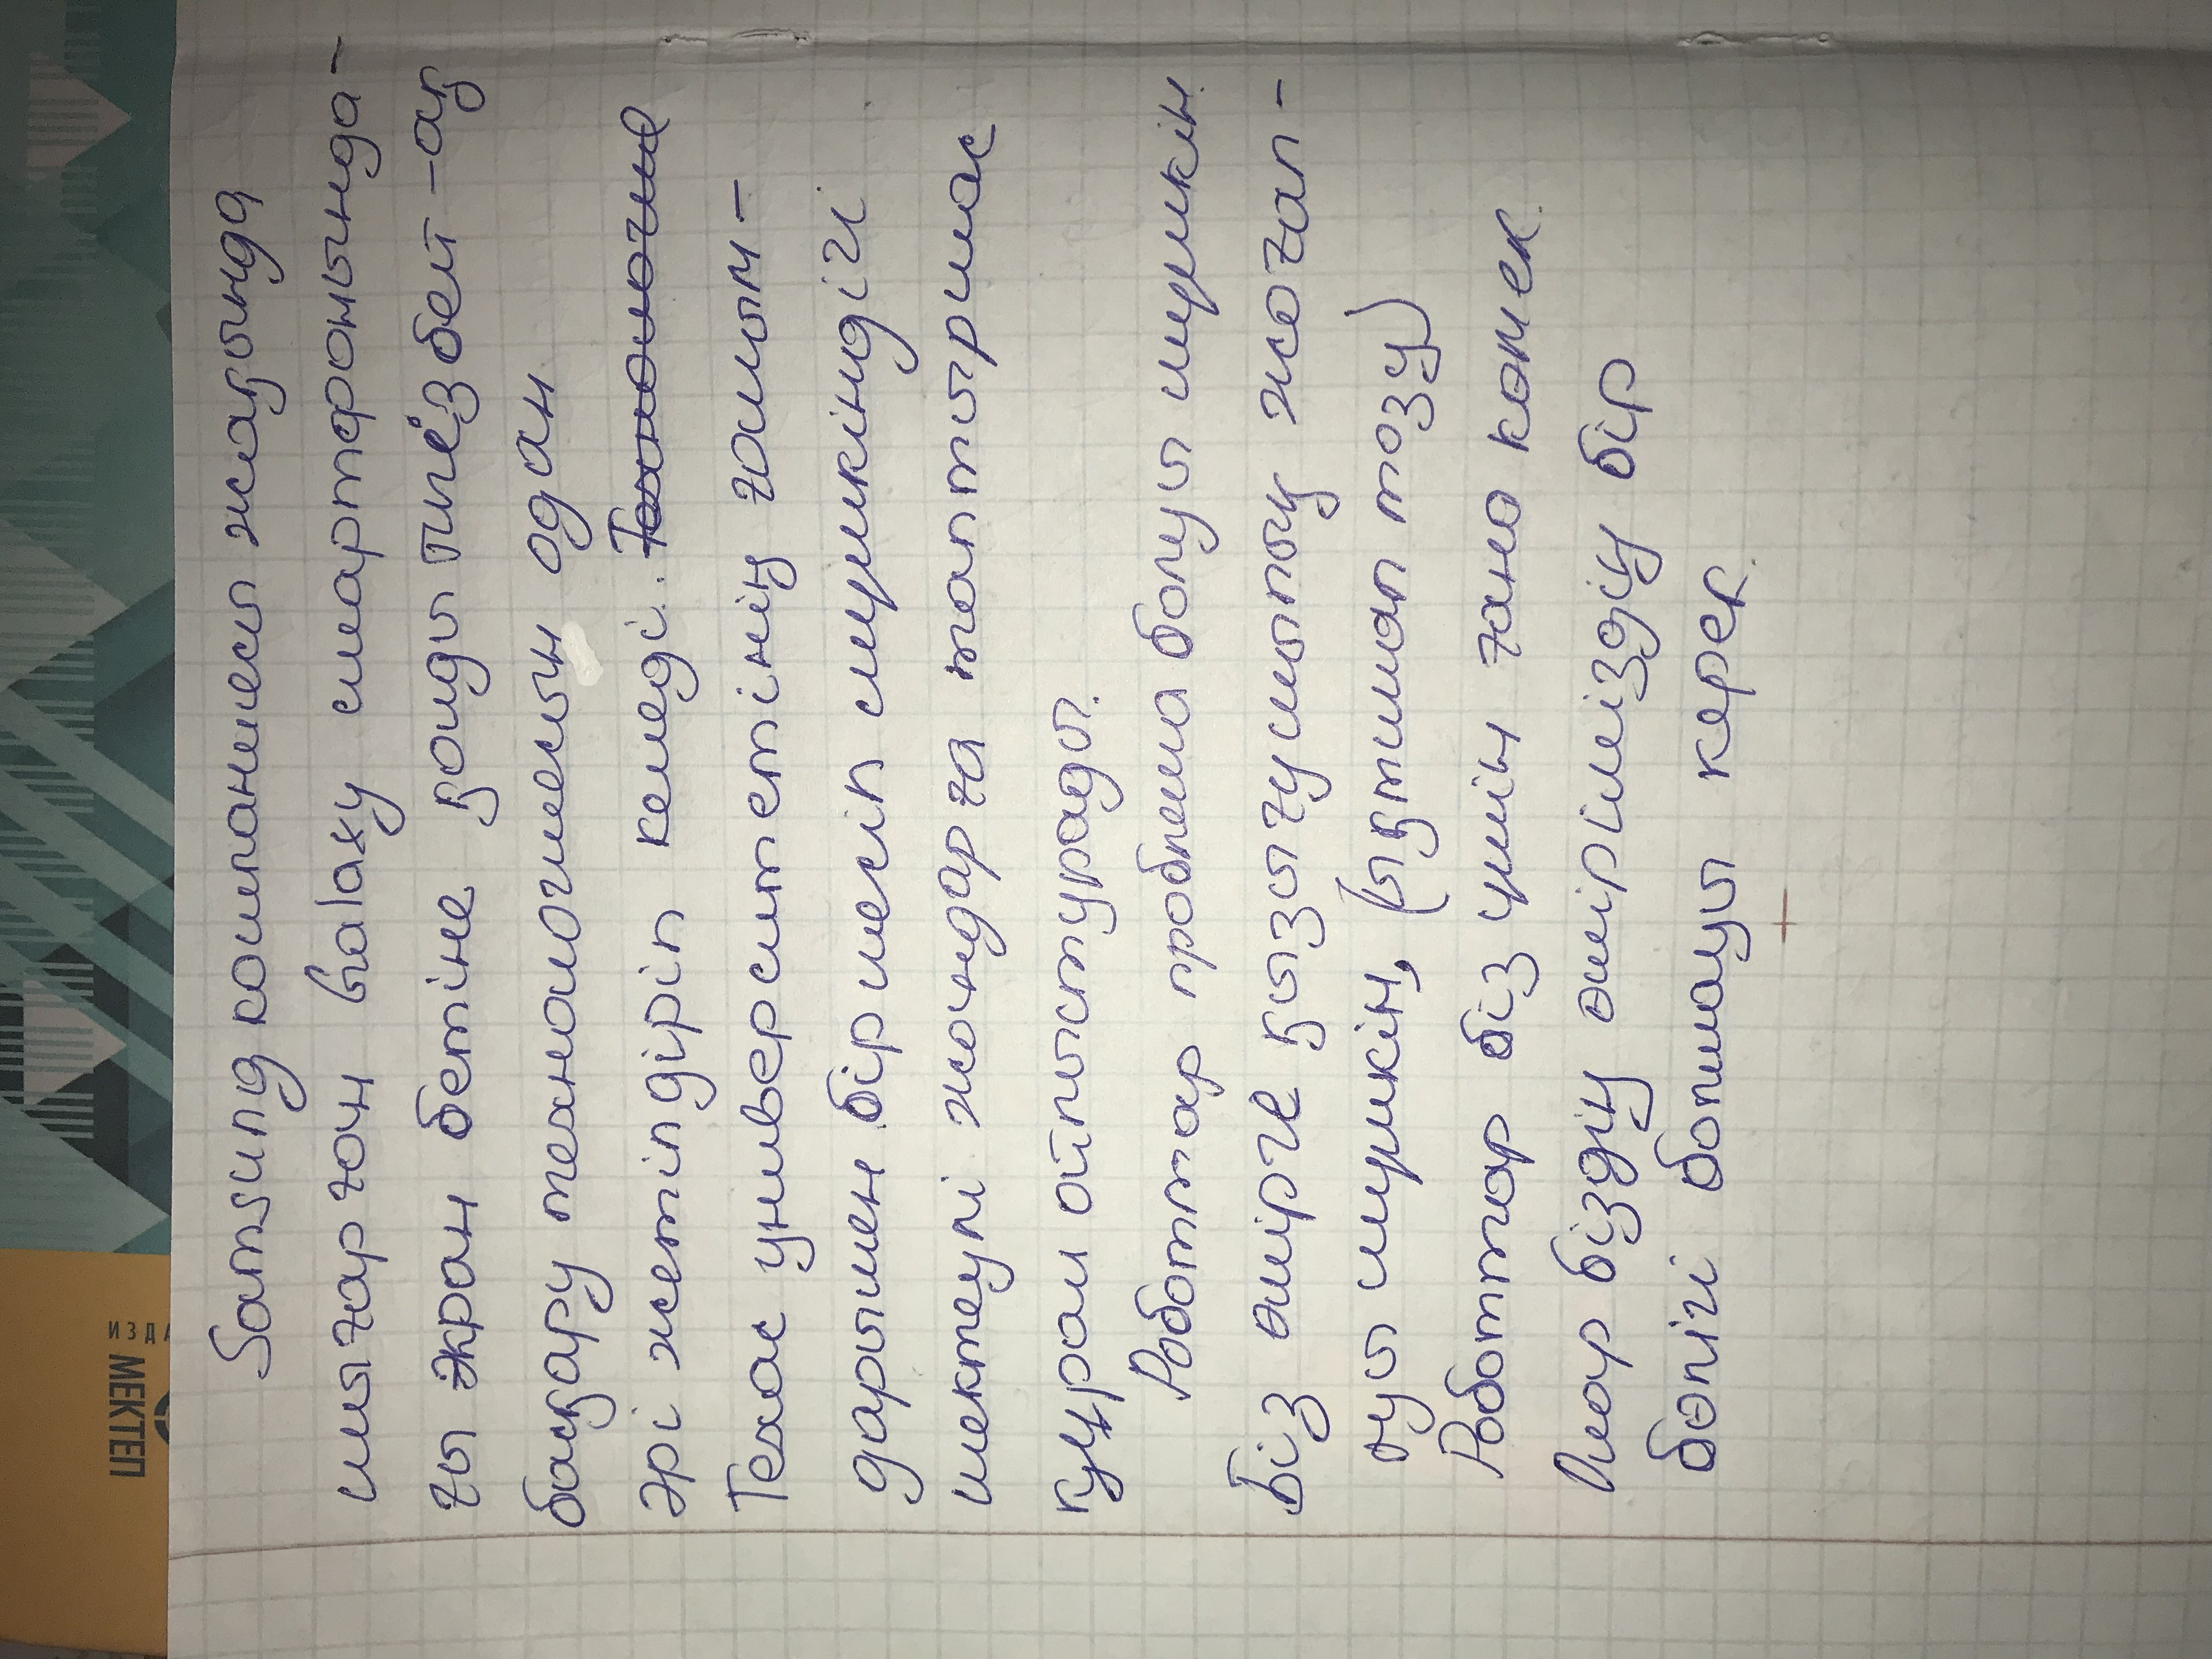 Samsung компаниясы жақында
шығарған Galaxy смартфонында-
ғы экран бетіне қолды тигізбей-ақ
басқару технологиясын одан
әрі жетілдіріп келеді.
Техас университенің ғалым-
дарымен бірлесіп мүмкіндігі
шектеулі жандарға таптырмас
құрал ойластыруда.
Роботтар проблема болуы мүмкін
Біз өмірге қызғусылығу жоғал-
туы мүмкін, (ұқтимал тозу)
Роботтар біз үшін ғана көмек
Олар біздің өміріміздің бір
бөлігі болмауы керек.
МЕКТЕП